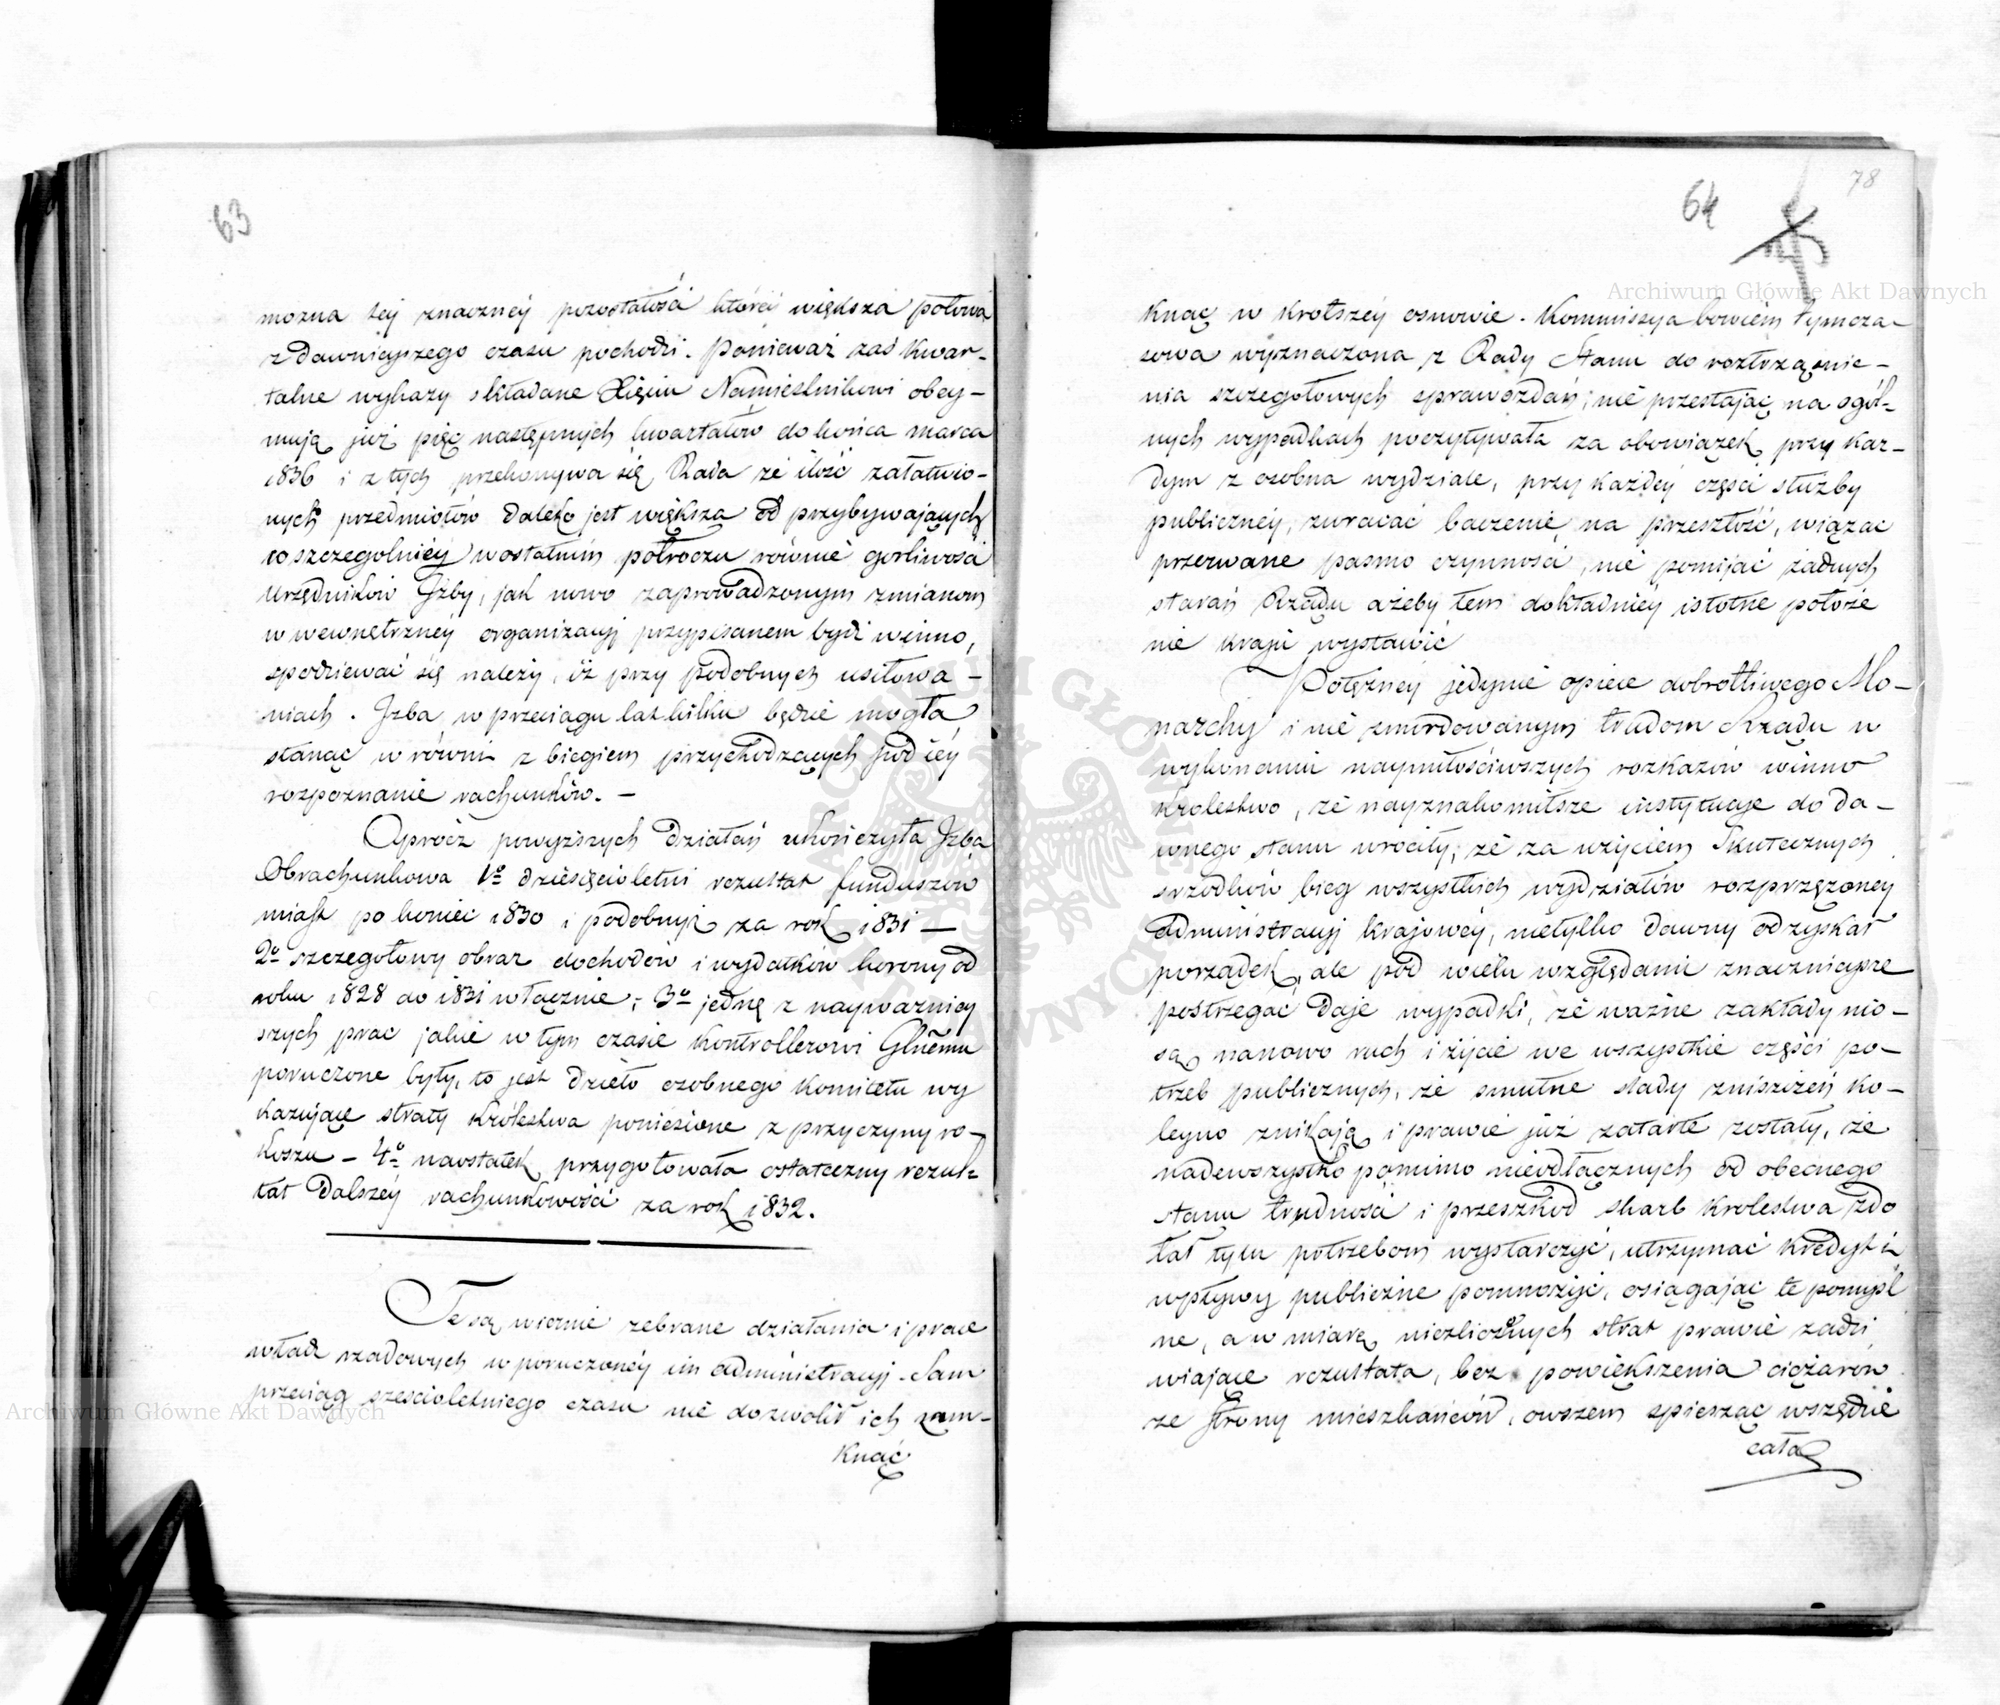 63
można tej znaczney pozostałości któréj większa połowa
z dawniejszego czasu pochodzi. Ponieważ zaś kwar-
talne wykazy składane Xięciu Namiestnikowi obey-
mują już pięć następnych kwartałów do końca marca
1836 i z tych przekonywa się Rada że ilość załatwio-
nych przedmiotów daleko jest większa od przybywających
co szczególniéy w ostatnim półroczu równie gorliwości
Urzędników Izby, jak nowo zaprowadzonym zmianom
w wewnętrznéy organizacyj przypisanem bydź winno,
spodziewać się należy, iż przy podobnych usiłowa-
niach. Izba w przeciągu lat kilku będzie mogła
stanąć w równi z biegiem przychodzących pod iéy
rozpoznanie rachunków. -
Oprócz powyższych działań ukończyła Izba
Obrachunkowa 1o dziesięcioletni rezultat funduszów
miast po koniec 1830 i podobnyż za rok 1831 —
2o szczegołowy obraz dochodów i wydatków korony od
roku 1828 do 1831 włącznie; 3o jednę z nayważniey
szych prac jakie w tym czasie Kontrollerowi Głnemu
poruczone były, to jest dzieło osobnego Komitetu wy
kazujące straty Królestwa poniesione z przyczyny ro-
koszu - 4o naostatek przygotowała ostateczny rezul-
tat dalszéy rachunkowości za rok 1832.
Te są wiernie zebrane działania i prace
władz rządowych w poruczonéy im administracyj. Sam
przeciąg sześcioletniego czasu nie dozwolił ich zam-
knąć
78
64
knąć w krótszéy osnowie. Kommissyja bowiem tymcza-
sowa wyznaczona z Rady Stanu do roztrząśnie-
nia szczegołowych sprawozdań, nie przestając na ogól-
nych wypadkach poczytywała za obowiązek przy każ-
dym z osobna wydziale, przy każdéy części służby
publicznéy, zwracać baczenie na przeszłość, wiązać
przerwane pasmo czynności, nie pomijać żadnych
starań Rządu ażeby tem dokładniéy istotne położe
nie kraju wystawić
Potężnéy jedynie opiece dobrotliwego Mo-
narchy i nie zmordowanym trudom Rządu w
wykonaniu naymiłościwszych rozkazów winno
Królestwo, że nayznakomitsze instytucje do da-
wnego stanu wróciły, że za użyciem skutecznych
srzodków bieg wszystkich wydziałów rozprzężoney
administracyj krajowéy, nietylko dawny odzyskał
porządek, ale pod wielu względami znacznieysze
postrzegać daje wypadki, że ważne zakłady nio-
są nanowo ruch i życie we wszystkie części po-
trzeb publicznych, że smutne ślady zniszczeń ko-
leyno znikają i prawie już zatarte zostały, że
nadewszystko pomimo nieodłącznych od obecnego
stanu trudności i przeszkód skarb Królestwa zdo
łał tylu potrzebom wystarczyć, utrzymać kredyt i
wpływy publiczne pomnożyć, osiągając te pomyśl
ne, a w miarę niezliczonych strat prawie zadzi
wiające rezultata, bez powiększenia ciężarów
ze strony mieszkańców, owszem spiesząc wszędzie
całą
Archiwum Główne Akt Dawnych
Archiwum Główne Akt Dawnych
ARCHIWUM GŁÓWNE AKT DAWNYCH